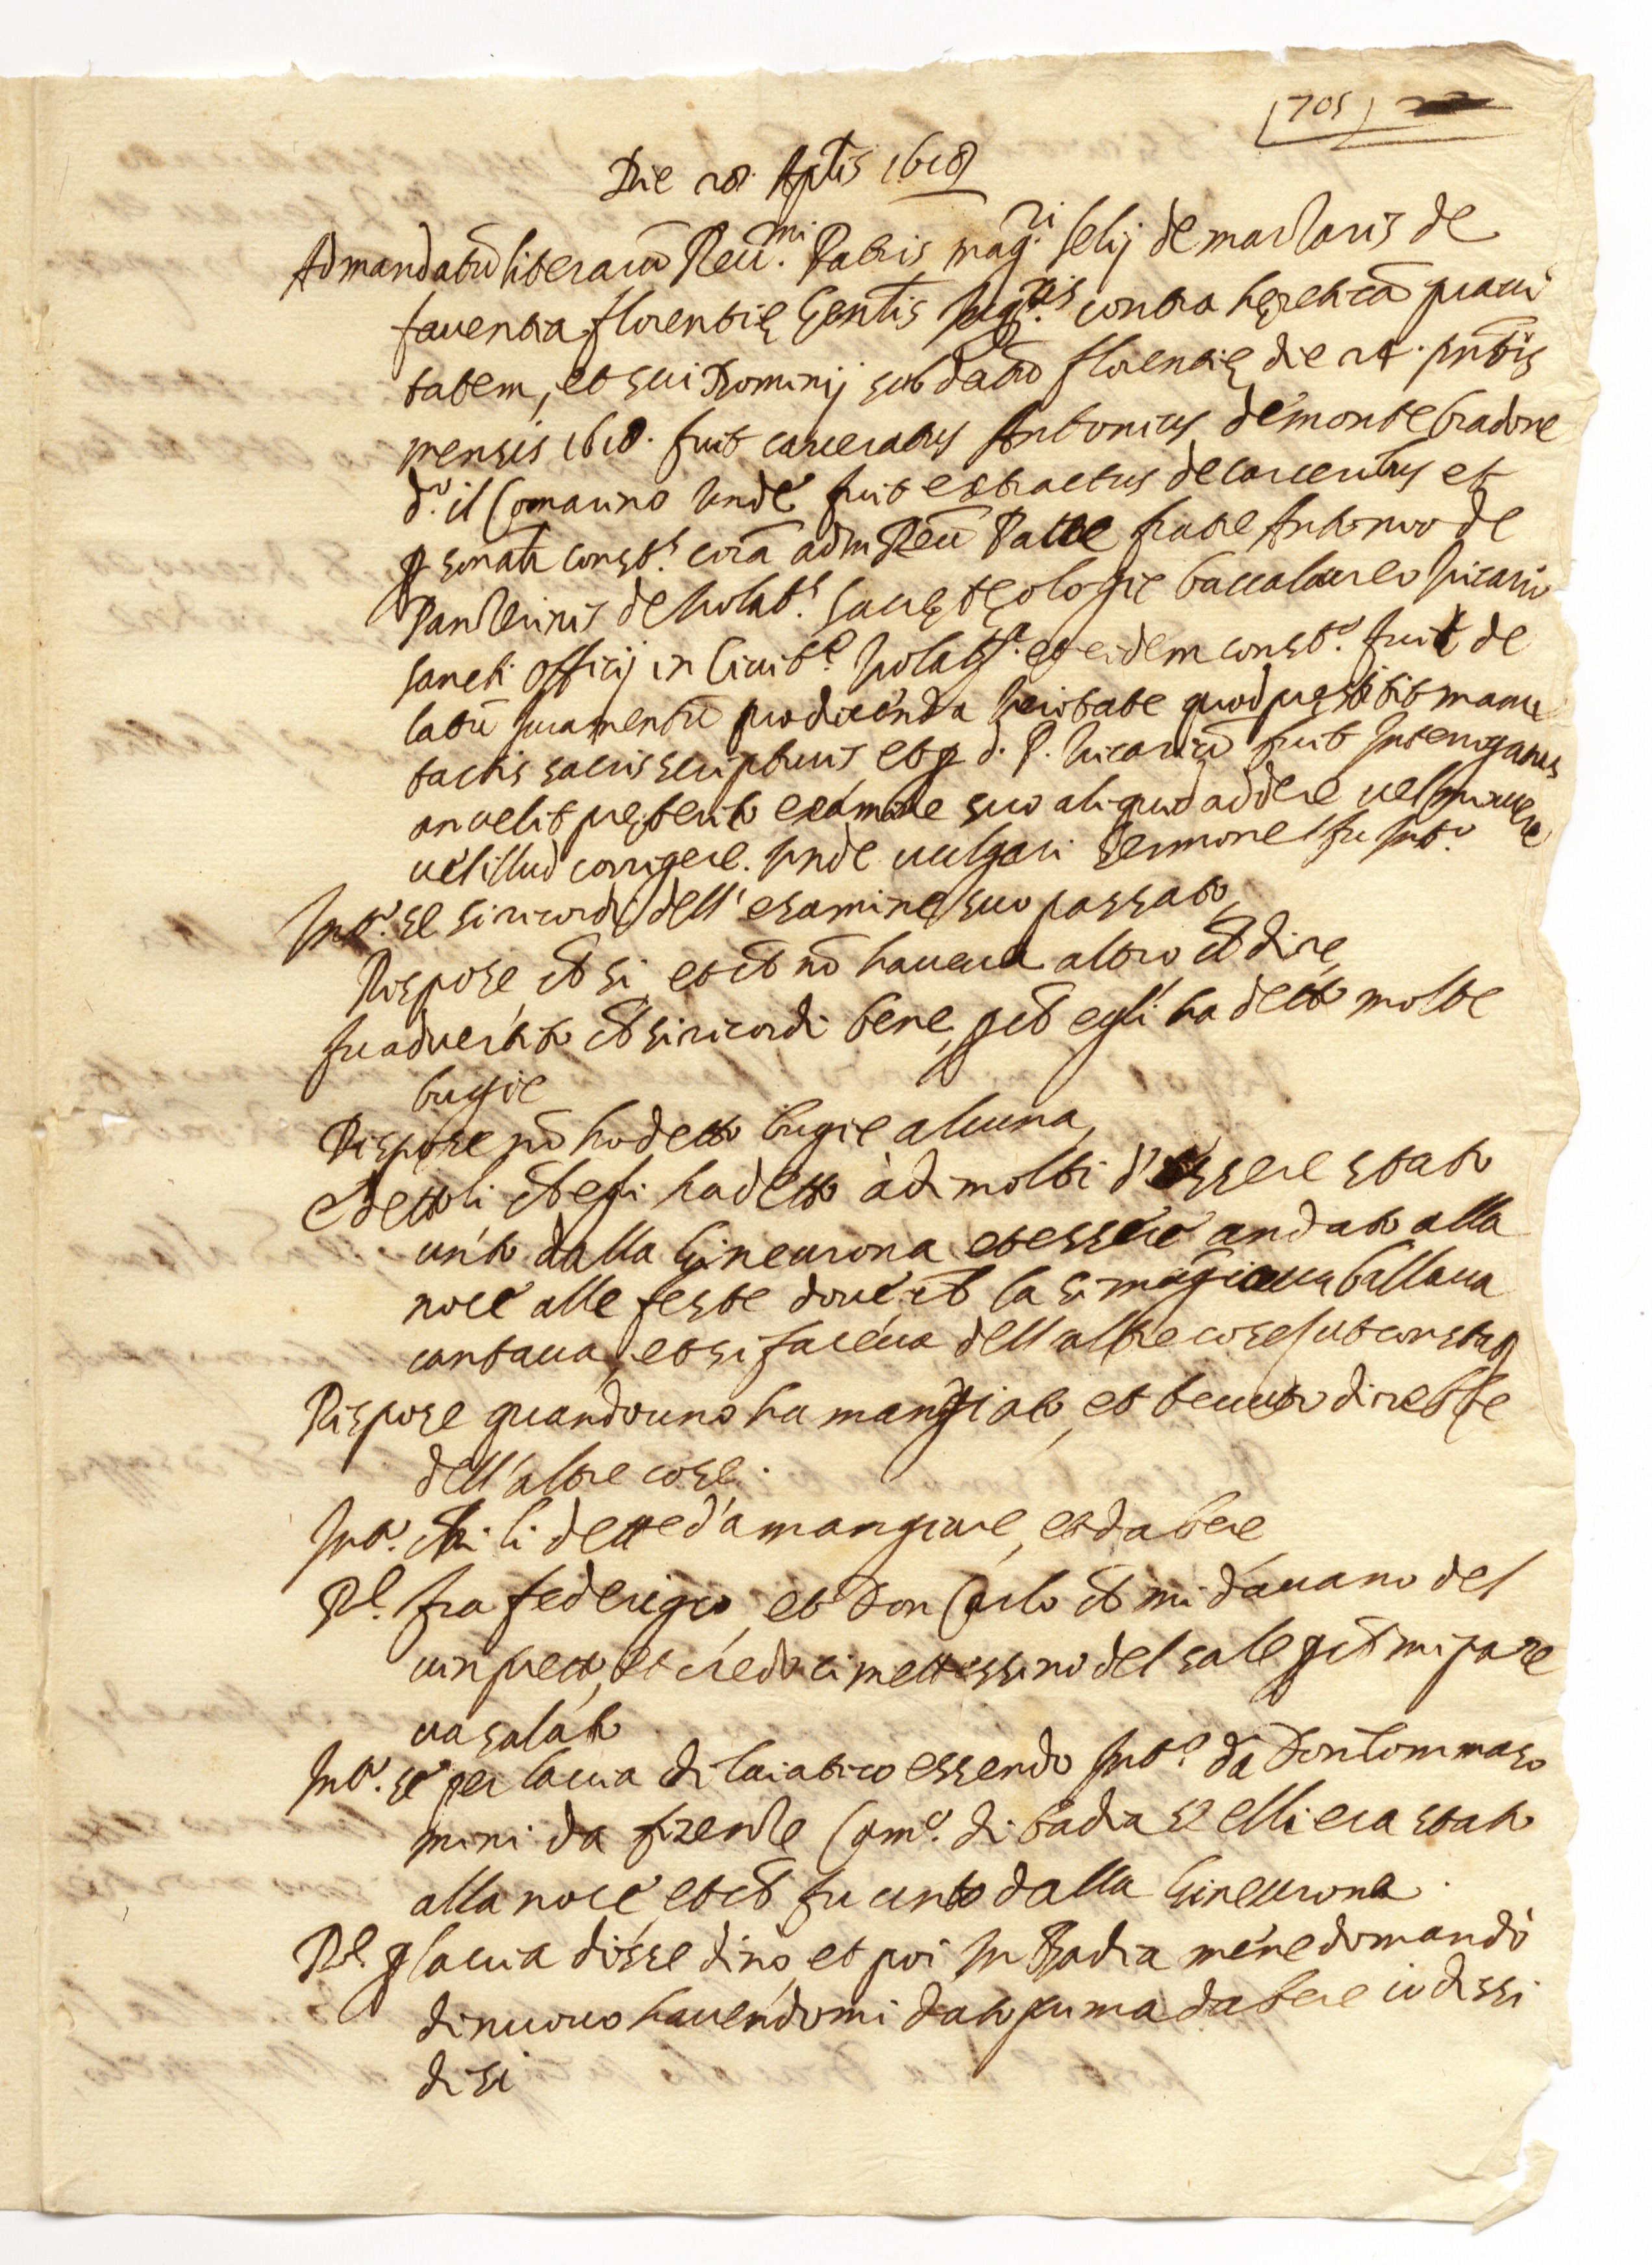 (705) 22
Die 28 Aplis 1618
Ad mandatũ literarũ Reu.mi Patris mag.ri lelij de marzaris de
fauentia florentię Genlis Inq.ris contra hęreticã praui
tatem, et sui Dominij sub datũ florentię die 24. pñtis
mensis 1618. fuit carceratus Antonius de monte bradone
d.o il Comarino unde fuit extractus de carceribus et
psonatr const.s corã adm Reũ Patre fratre Antonio de
de Volat.s sacrę tęologie baccalaureo Vicario
sancti officij in Ciuit.e Volat.a et eidem const.o fuit de
latũ Juramentũ pro dicenda ueritate quod pręstitit manu
tactis sacris scripturis, et p d. P. Vicariũ fuit Interrogatus
an uelit pręterito examine suo aliquid addere uel minuere
uel illud corrigere. Unde uulgari sermone fu Int.o
Int.o se si ricorda dell' esamine suo passato,
Rispose, ch si, et ch nõ haueua altro ch dire,
fu aduertito ch si ricordi bene, pch egli ha detto molte
bugie
Rispose nõ ho detto bugie alcuna,
Dettoli ch egli ha detto à di molti d'essere stato
unto dalla Gineurona et essere andato alla
noce alle feste doue ch la si mangiaua ballaua
cantaua, et si faceua dell altre cose ut constat
Rispose quando uno ha mangiato, et beuuto direbbe
dell'altre cose.
Int.o chi li dette da mangiare, et da bere
R.e fra federigo, et Don Carlo ch mi dauano del
uin pretto, et credo ci mettessino del sale pch mi pare
ua salato
Int.o se per la uia di laiatico essendo Int.o da Don Tommaso
mini da firenze Com.o di badia se elli era stato
alla noce, et ch fu unto dalla Gineurona.
R.e p la uia disse di no, et poi In Badia me ne domandò
di nuouo hauendomi dato prima da bere io dissi
di si